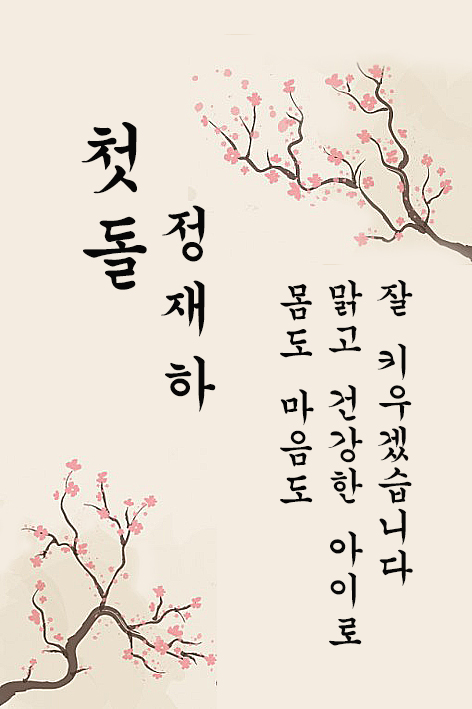 첫돌
정재하
몸도 마음도
맑고 건강한 아이로
잘 키우겠습니다